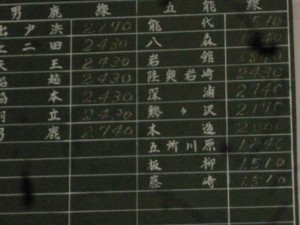 男鹿線 五能線
出戸浜 2,170 能代 1510
上二田 2,430 八森
天王 2430 岩館
船越 2,430 陸奥岩崎 2430
脇本 2,430 深浦 2740
羽立 2,430 鰺ヶ沢
男鹿 2,740 木造
五所川原
板柳 1,510
藤崎 1510